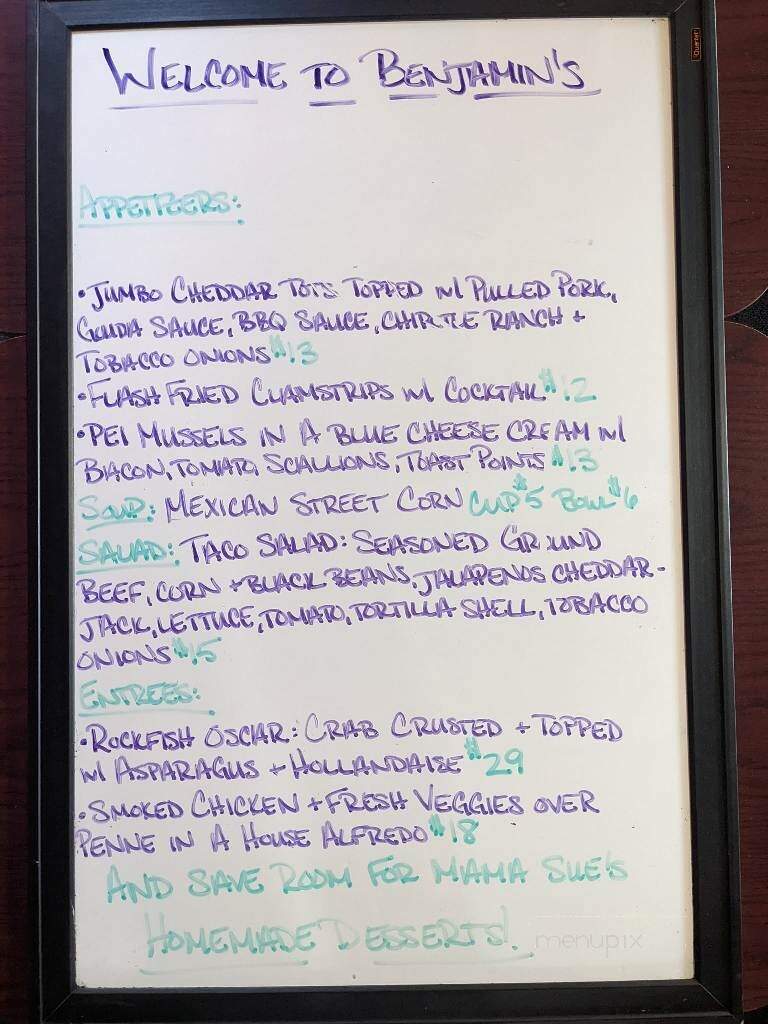 Quartet
WELCOME TO BENJAMIN'S
APPETIZERS:
• JUMBO CHEDDAR TOTS TOPPED W/ PULLED PORK,
GOUDA SAUCE, BBQ SAUCE, CHIPOTLE RANCH +
TOBACCO ONIONS $13
• FLASH FRIED CLAMSTRIPS W/ COCKTAIL $12
• PEI MUSSELS IN A BLUE CHEESE CREAM W/
BACON, TOMATO, SCALLIONS, TOAST POINTS $13
SOUP: MEXICAN STREET CORN CUP $5 BOWL $6
SALAD: TACO SALAD: SEASONED GROUND
BEEF, CORN + BLACK BEANS, JALAPENOS CHEDDAR-
JACK, LETTUCE, TOMATO, TORTILLA SHELL, TOBACCO
ONIONS $15
ENTREES:
• ROCKFISH OSCAR: CRAB CRUSTED + TOPPED
W/ ASPARAGUS + HOLLANDAISE $29
• SMOKED CHICKEN + FRESH VEGGIES OVER
PENNE IN A HOUSE ALFREDO $18
AND SAVE ROOM FOR MAMA SUE'S
HOMEMADE DESSERTS!
menupix